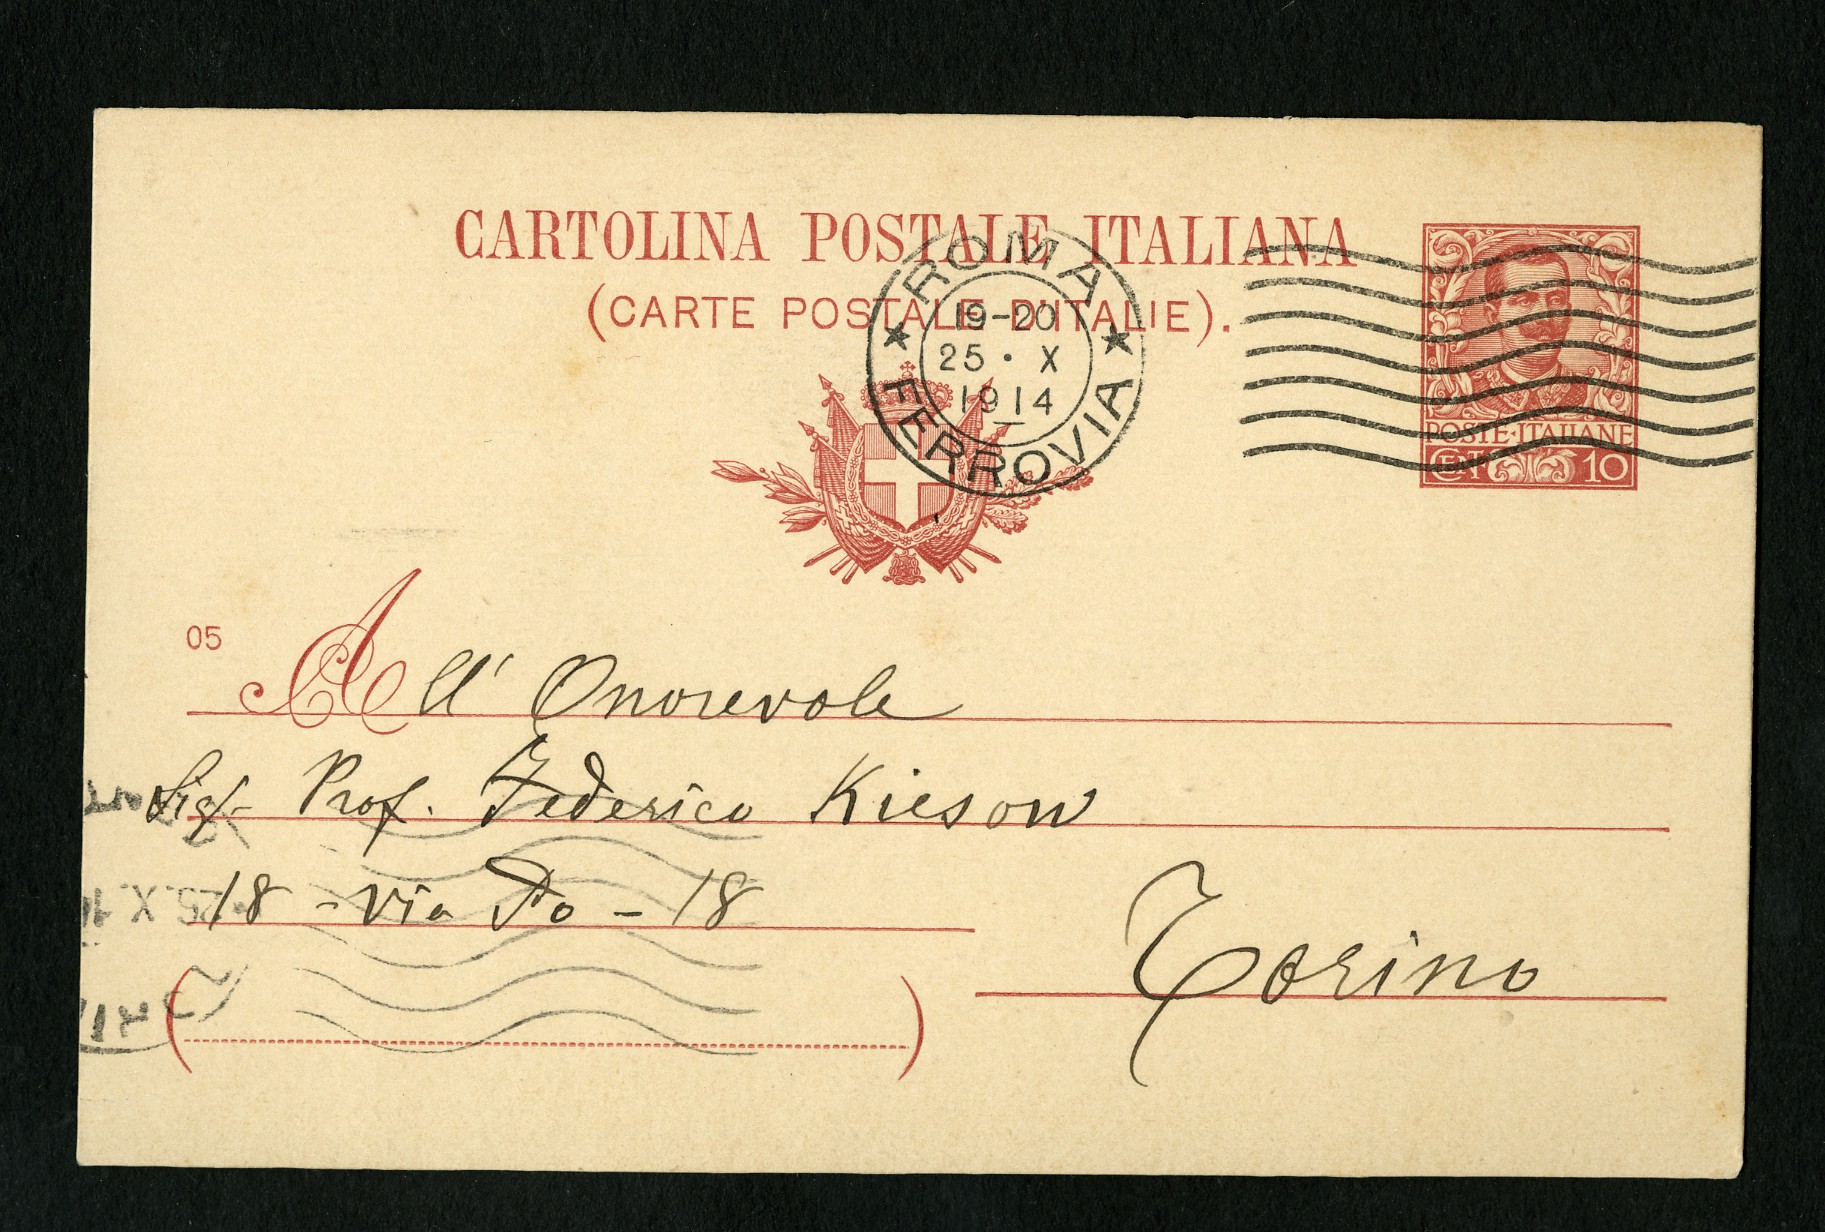 CARTOLINA POSTALE ITALIANA
(CARTE POSTALE D'ITALIE).
ROMA
19-20
25 · X
1914
FERROVIA
POSTE·ITALIANE
CENT 10
05
All' Onorevole
Sigr Prof. Federico Kiesow
18 - Via Po - 18
Torino